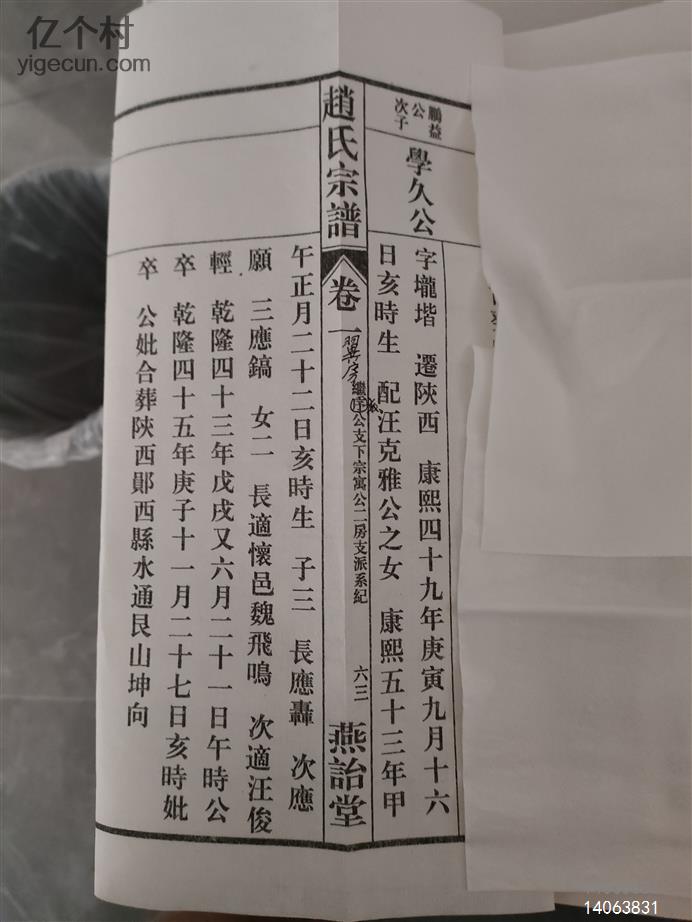 亿个村
yigecun.com
鵬益
公
次子
學久公
字壠堦 遷陝西 康熙四十九年庚寅九月十六
日亥時生 配汪克雅公之女 康熙五十三年甲
趙氏宗譜 卷一 翼房 繼序公支下宗寓公二房支派系紀 六三 燕詒堂
午正月二十二日亥時生 子三 長應轟 次應
願 三應鎬 女二 長適懷邑魏飛鳴 次適汪俊
輕 乾隆四十三年戊戌又六月二十一日午時公
卒 乾隆四十五年庚子十一月二十七日亥時妣
卒 公妣合葬陝西鄖西縣水通艮山坤向
14063831